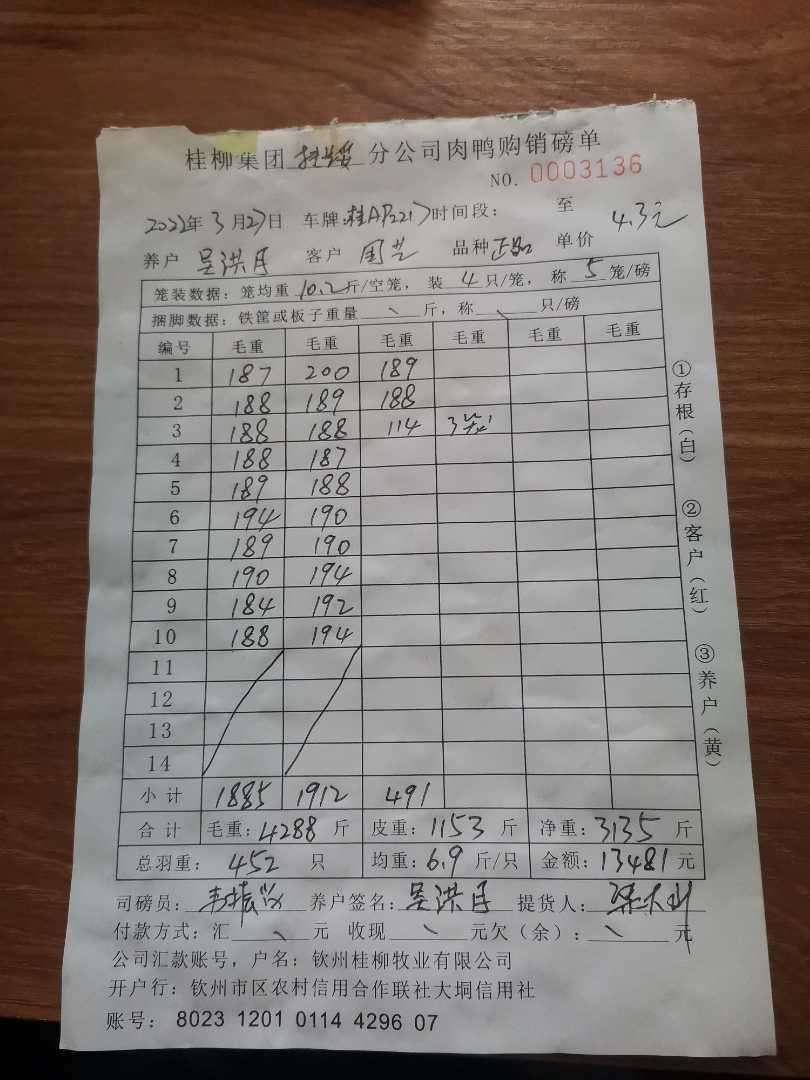 桂柳集团 分公司肉鸭购销磅单
NO. 0003136
2022年3月27日 车牌:桂AP2217 时间段: 至
养户 吴洪月 客户 品种 单价 4.3元
笼装数据：笼均重 10.2 斤/空笼，装 4 只/笼，称 5 笼/磅
捆脚数据：铁筐或板子重量 斤，称 只/磅
编号 毛重 毛重 毛重 毛重 毛重 毛重
1 187 200 189
2 188 189 188
3 188 188 114 3笼
4 188 187
5 189 188
6 194 190
7 189 190
8 190 194
9 184 192
10 188 194
11
12
13
14
小计 1885 1912 491
合计 毛重：4288 斤 皮重：1153 斤 净重：3135 斤
总羽重： 452 只 均重：6.9 斤/只 金额：13481 元
司磅员： 养户签名：吴洪月 提货人：
付款方式：汇 元 收现 元欠（余）： 元
公司汇款账号，户名：钦州桂柳牧业有限公司
开户行：钦州市区农村信用合作联社大垌信用社
账号： 8023 1201 0114 4296 07
①存根（白）
②客户（红）
③养户（黄）